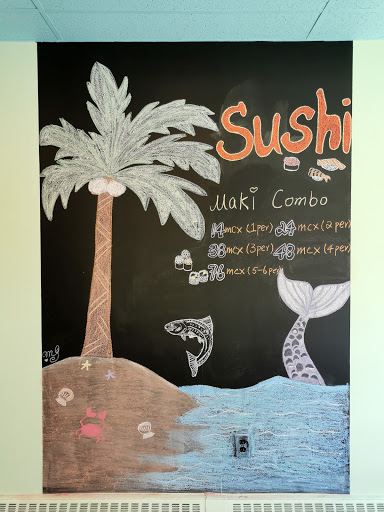 Sushi
Maki Combo
14 mcx (1 per) 24 mcx (2 per)
38 mcx (3 per) 48 mcx (4 per)
76 mcx (5-6 per)
mg